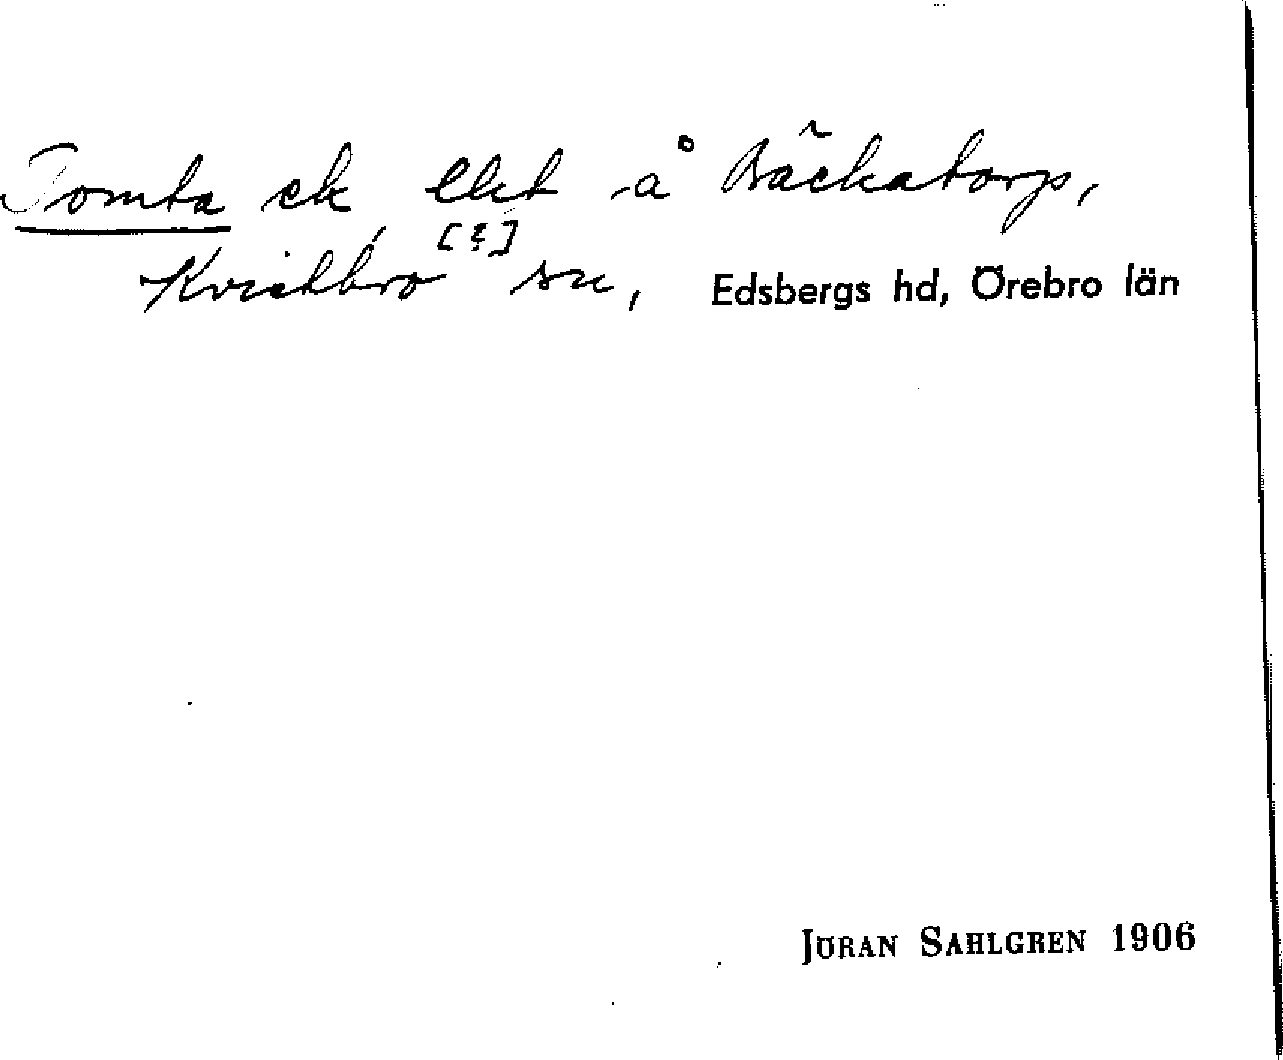 Tomta ck lht å Bäckatorp,
[?]
Kvistbro sn, Edsbergs hd, Örebro län
JÖRAN SAHLGREN 1906